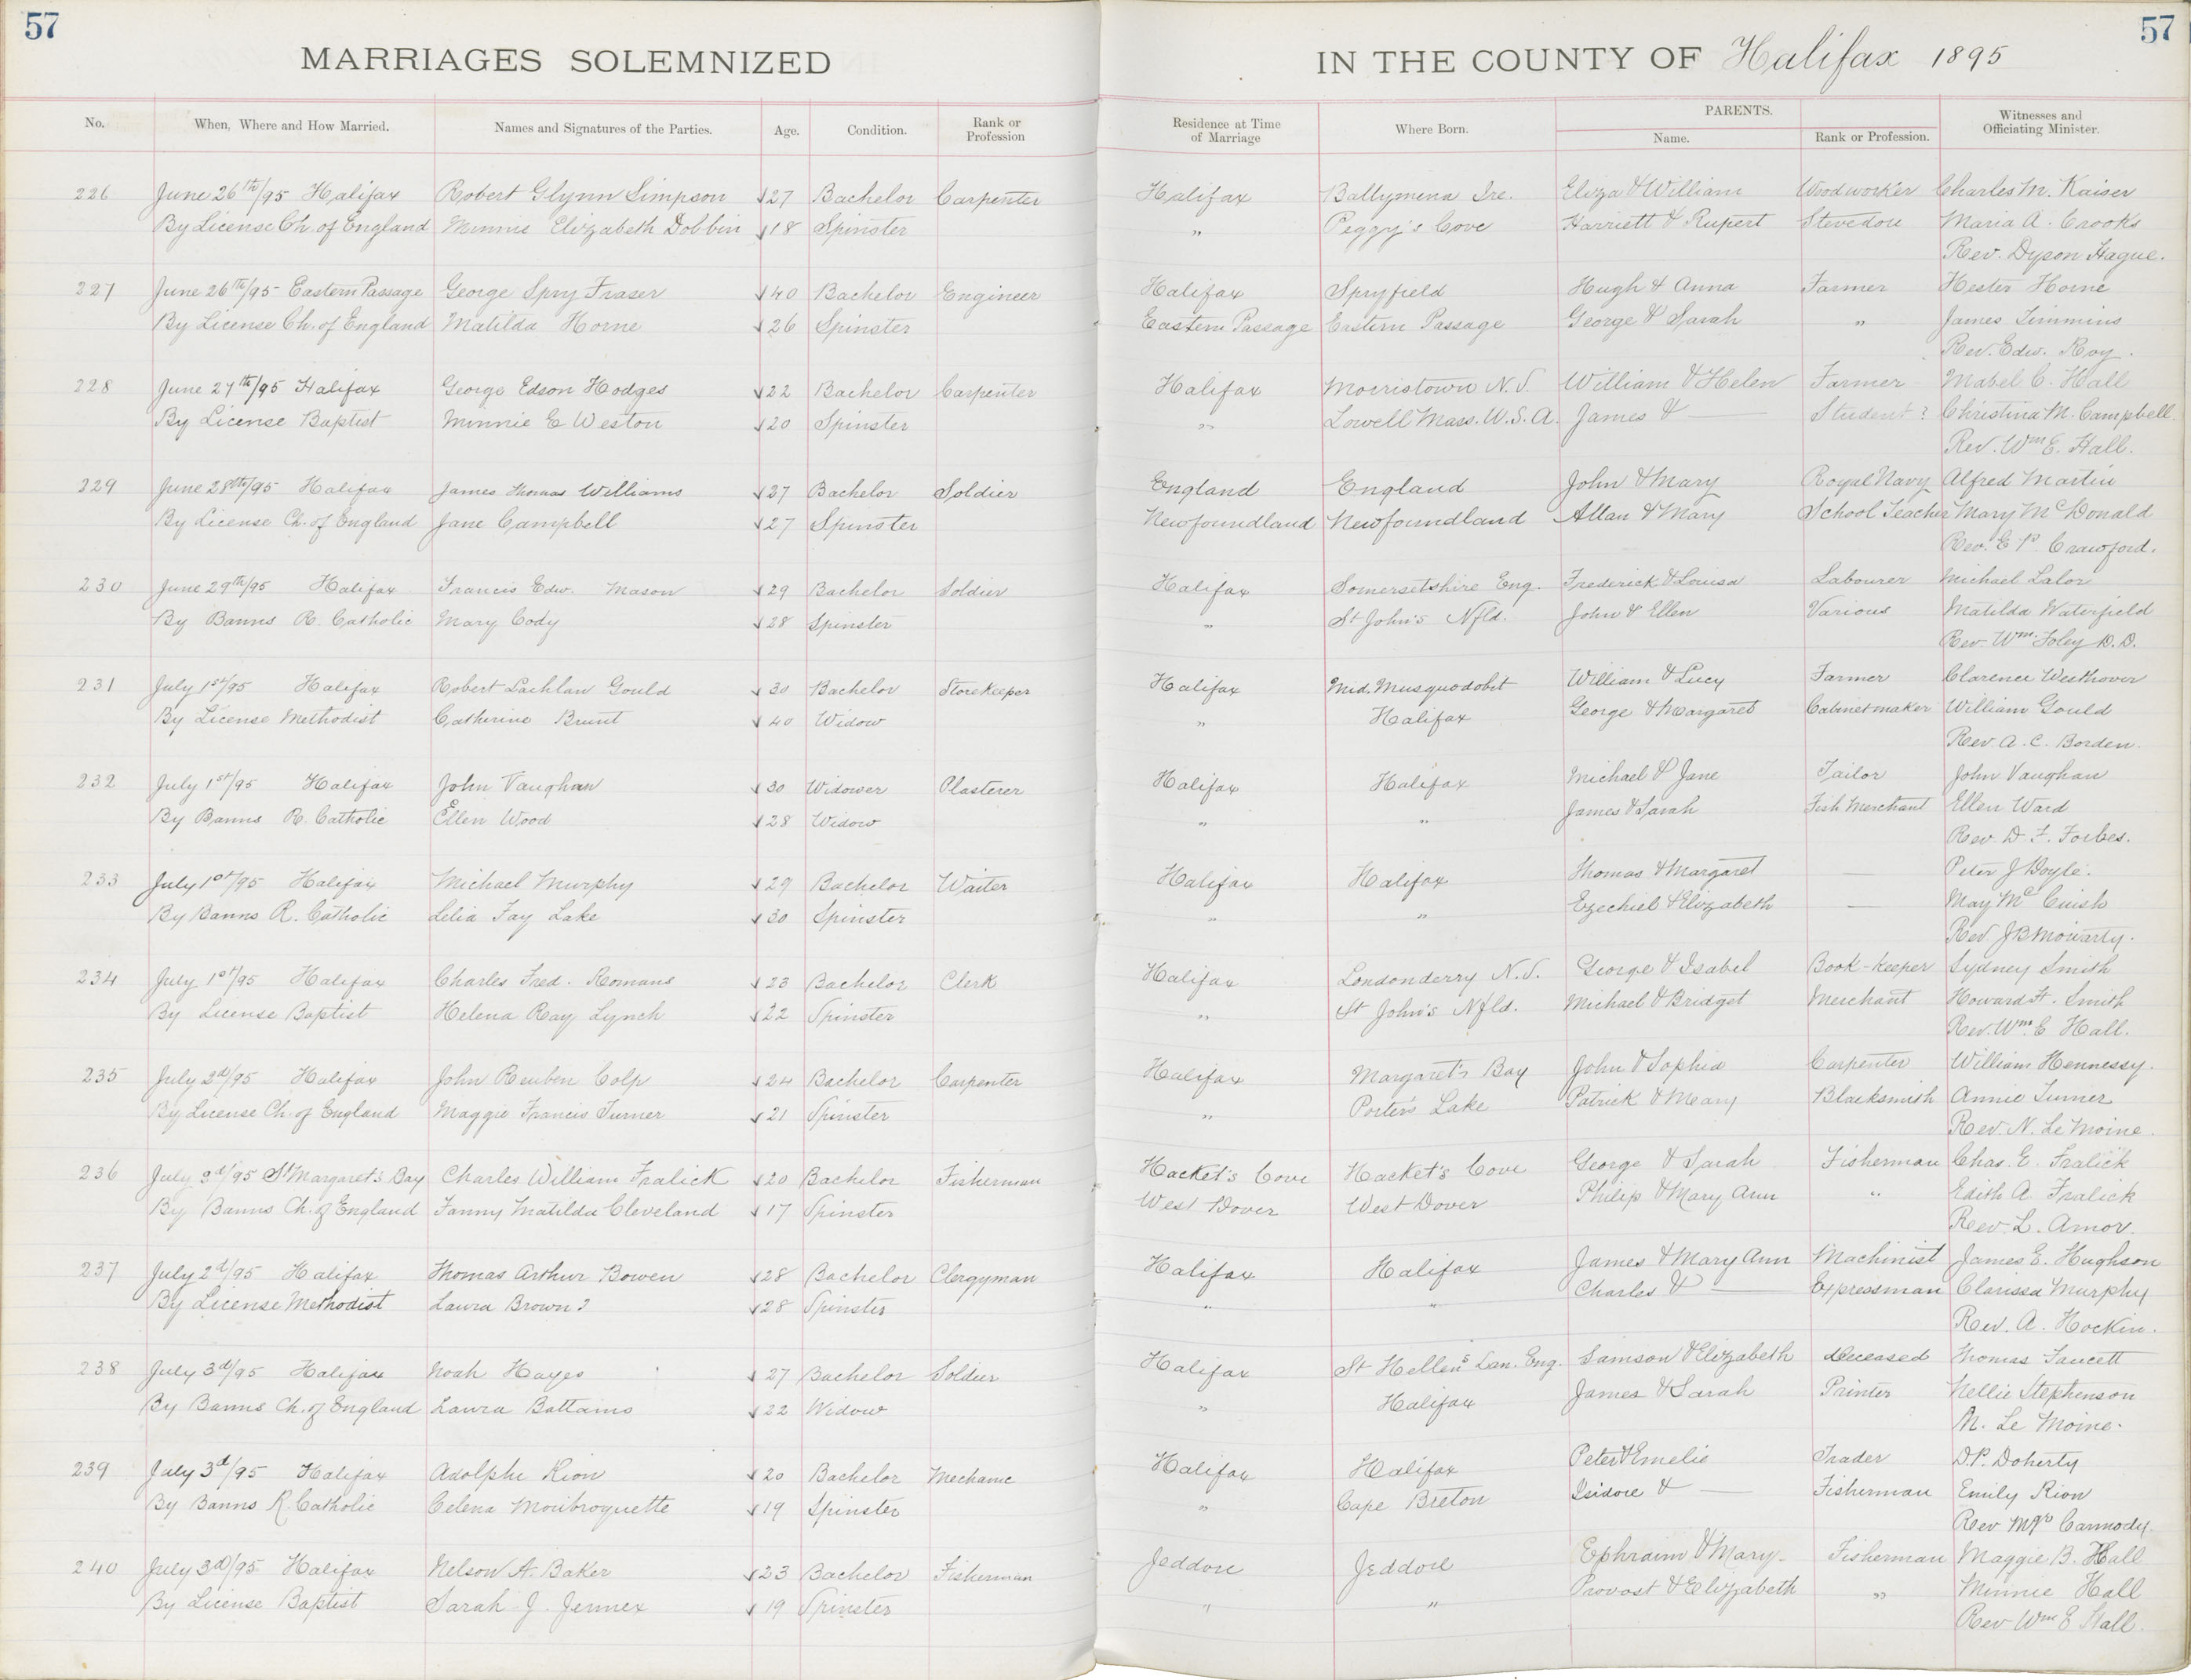 57
57
MARRIAGES SOLEMNIZED
IN THE COUNTY OF Halifax 1895
No. When, Where and How Married. Names and Signatures of the Parties. Age. Condition. Rank or Profession Residence at Time of Marriage Where Born. PARENTS. Name. Rank or Profession. Witnesses and Officiating Minister.
226 June 26th/95 Halifax Robert Glynn Simpson 27 Bachelor Carpenter Halifax Ballymena Ire. Eliza & William Woodworker Charles M. Kaiser
By License Ch. of England Minnie Elizabeth Dobbin 18 Spinster " Peggy's Cove Harriett & Rupert Stevedore Maria A. Crooks
Rev. Dyson Hague.
227 June 26th/95 Eastern Passage George Spry Fraser 40 Bachelor Engineer Halifax Spryfield Hugh & Anna Farmer Hester Horne
By License Ch. of England Matilda Horne 26 Spinster Eastern Passage Eastern Passage George & Sarah " James Simmins
Rev. Edw. Roy.
228 June 27th/95 Halifax George Edson Hodges 22 Bachelor Carpenter Halifax Morristown N.S. William & Helen Farmer Mabel C. Hall
By License Baptist Minnie E Weston 20 Spinster " Lowell Mass. U.S.A. James & — Student? Christina M. Campbell.
Rev. Wm E. Hall.
229 June 28th/95 Halifax James Thomas Williams 27 Bachelor Soldier England England John & Mary Royal Navy Alfred Martin
By License Ch. of England Jane Campbell 27 Spinster Newfoundland Newfoundland Allan & Mary School Teacher Mary McDonald
Rev. E. P. Crawford.
230 June 29th/95 Halifax Francis Edw. Mason 29 Bachelor Soldier Halifax Somersetshire Eng. Frederick & Louisa Labourer Michael Lalor
By Banns R. Catholic Mary Cody 28 Spinster " St John's Nfld. John & Ellen Various Matilda Waterfield
Rev. Wm. Foley D.D.
231 July 1st/95 Halifax Robert Lachlan Gould 30 Bachelor Storekeeper Halifax Mid. Musquodobit William & Lucy Farmer Clarence Westhover
By License Methodist Catherine Brunt 40 Widow " Halifax George & Margaret Cabinetmaker William Gould
Rev. A. C. Borden.
232 July 1st/95 Halifax John Vaughan 30 Widower Plasterer Halifax Halifax Michael & Jane Tailor John Vaughan
By Banns R. Catholic Ellen Wood 28 Widow " " James & Sarah Fish Merchant Ellen Ward
Rev. D. F. Forbes.
233 July 1st/95 Halifax Michael Murphy 29 Bachelor Waiter Halifax Halifax Thomas & Margaret — Peter J Doyle.
By Banns R. Catholic Lelia Fay Lake 30 Spinster " " Ezechiel & Elizabeth — May McCuish
Rev J B Moriarty.
234 July 1st/95 Halifax Charles Fred. Romans 23 Bachelor Clerk Halifax Londonderry N.S. George & Isabel Book-keeper Sydney Smith
By License Baptist Helena Ray Lynch 22 Spinster " St John's Nfld. Michael & Bridget Merchant Howard H. Smith
Rev. Wm. E Hall.
235 July 2d/95 Halifax John Reuben Colp 24 Bachelor Carpenter Halifax Margaret's Bay John & Sophia Carpenter William Hennessy.
By License Ch. of England Maggie Francis Turner 21 Spinster " Porter's Lake Patrick & Mary Blacksmith Annie Turner
Rev. N. Le Moine.
236 July 2d/95 St Margaret's Bay Charles William Fralick 20 Bachelor Fisherman Hacket's Cove Hacket's Cove George & Sarah Fisherman Chas. E. Fralick
By Banns Ch. of England Fanny Matilda Cleveland 17 Spinster West Dover West Dover Philip & Mary Ann " Edith A Fralick
Rev. L. Amor.
237 July 2d/95 Halifax Thomas Arthur Bowen 28 Bachelor Clergyman Halifax Halifax James & Mary Ann Machinist James E. Hughson
By License Methodist Laura Brown? 28 Spinster " " Charles & — Expressman Clarissa Murphy
Rev. A. Hockin.
238 July 3d/95 Halifax Noah Hayes 27 Bachelor Soldier Halifax St Hellen's Lan. Eng. Samson & Elizabeth deceased Thomas Faucett
By Banns Ch. of England Laura Battams 22 Widow " Halifax James & Sarah Printer Nellie Stephenson
N. Le Moine.
239 July 3d/95 Halifax Adolphe Rion 20 Bachelor Mechanic Halifax Halifax Peter & Emelie Trader D.P. Doherty
By Banns R. Catholic Celena 19 Spinster " Cape Breton Isidore & — Fisherman Emily Rion
Rev Mgr Carmody.
240 July 3d/95 Halifax Nelson A. Baker 23 Bachelor Fisherman Jeddore Jeddore Ephraim & Mary Fisherman Maggie B. Hall
By License Baptist Sarah J. Jennex 19 Spinster " " Provost & Elizabeth " Minnie Hall
Rev Wm E Hall.